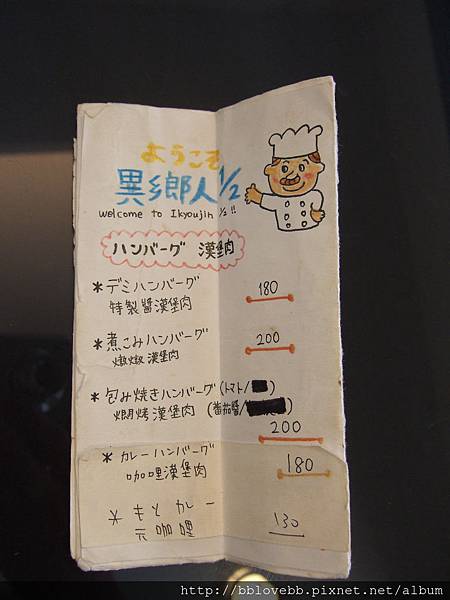 ようこそ
異鄉人1/2
welcome to Ikyoujin 1/2 !!
ハンバーグ 漢堡肉
*デミハンバーグ 180
特製醬漢堡肉
*煮こみハンバーグ 200
燉燉漢堡肉
*包み焼きハンバーグ(トマト/
燜烤漢堡肉 (蕃茄醬/
200
*カレーハンバーグ 180
咖哩漢堡肉
*もとカレー 130
元咖哩
http://bblovebb.pixnet.net/album